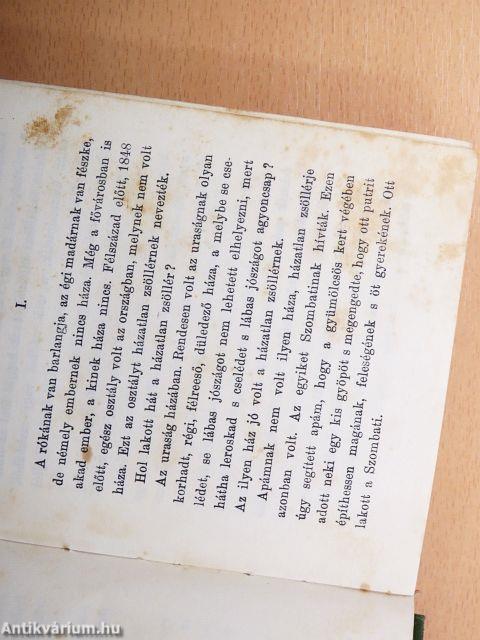 I.
A rókának van barlangja, az égi madárnak van fészke,
de némely embernek nincs háza. Még a fővárosban is
akad ember, a kinek háza nincs. Félszázad előtt, 1848
előtt, egész osztály volt az országban, melynek nem volt
háza. Ezt az osztályt házatlan zsöllérnek nevezték.
Hol lakott hát a házatlan zsöllér?
Az uraság házában. Rendesen volt az uraságnak olyan
korhadt, régi, félreeső, düledező háza, a melybe se cse-
lédet, se lábas jószágot nem lehetett elhelyezni, mert
hátha leroskad s cselédet s lábas jószágot agyoncsap?
Az ilyen ház jó volt a házatlan zsöllérnek.
Apámnak nem volt ilyen háza, házatlan zsöllérje
azonban volt. Az egyiket Szombatinak hívták. Ezen
úgy segített apám, hogy a gyümölcsös kert végében
adott neki egy kis gyöpöt s megengedte, hogy ott putrit
építhessen magának, feleségének s öt gyerekének. Ott
lakott a Szombati.
Antikvárium.hu